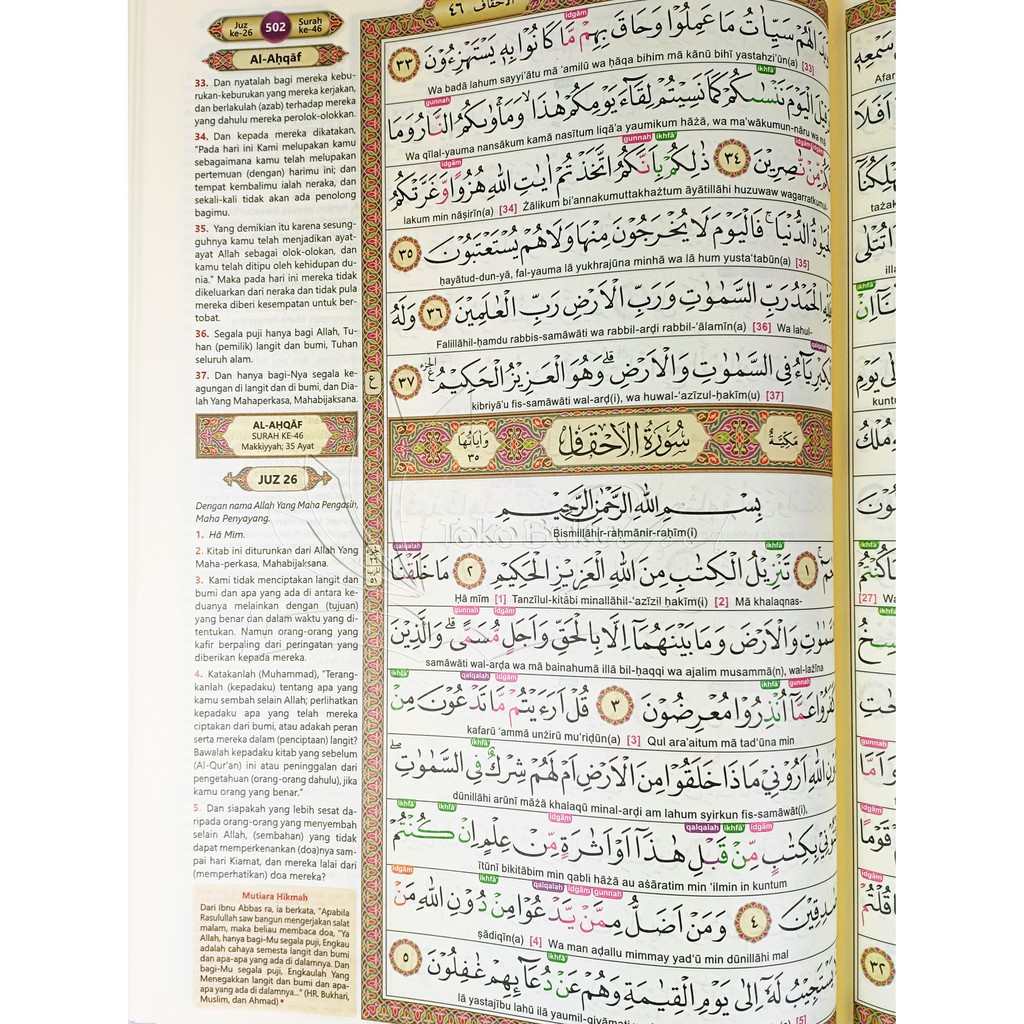 Juz
ke-26
502
Surah
ke-46
Al-Aḥqāf
33. Dan nyatalah bagi mereka kebu-
rukan-keburukan yang mereka kerjakan,
dan berlakulah (azab) terhadap mereka
yang dahulu mereka perolok-olokkan.
34. Dan kepada mereka dikatakan,
"Pada hari ini Kami melupakan kamu
sebagaimana kamu telah melupakan
pertemuan (dengan) harimu ini; dan
tempat kembalimu ialah neraka, dan
sekali-kali tidak akan ada penolong
bagimu.
35. Yang demikian itu karena sesung-
guhnya kamu telah menjadikan ayat-
ayat Allah sebagai olok-olokan, dan
kamu telah ditipu oleh kehidupan du-
nia." Maka pada hari ini mereka tidak
dikeluarkan dari neraka dan tidak pula
mereka diberi kesempatan untuk ber-
tobat.
36. Segala puji hanya bagi Allah, Tu-
han (pemilik) langit dan bumi, Tuhan
seluruh alam.
37. Dan hanya bagi-Nya segala ke-
agungan di langit dan di bumi, dan Dia-
lah Yang Mahaperkasa, Mahabijaksana.
AL-AḤQĀF
SURAH KE-46
Makkiyyah; 35 Ayat
JUZ 26
Dengan nama Allah Yang Maha Pengasih,
Maha Penyayang.
1. Hā Mīm.
2. Kitab ini diturunkan dari Allah Yang
Maha-perkasa, Mahabijaksana.
3. Kami tidak menciptakan langit dan
bumi dan apa yang ada di antara ke-
duanya melainkan dengan (tujuan)
yang benar dan dalam waktu yang di-
tentukan. Namun orang-orang yang
kafir berpaling dari peringatan yang
diberikan kepada mereka.
4. Katakanlah (Muhammad), "Terang-
kanlah (kepadaku) tentang apa yang
kamu sembah selain Allah; perlihatkan
kepadaku apa yang telah mereka
ciptakan dari bumi, atau adakah peran
serta mereka dalam (penciptaan) langit?
Bawalah kepadaku kitab yang sebelum
(Al-Qur'an) ini atau peninggalan dari
pengetahuan (orang-orang dahulu), jika
kamu orang yang benar."
5. Dan siapakah yang lebih sesat da-
ripada orang-orang yang menyembah
selain Allah, (sembahan) yang tidak
dapat memperkenankan (doa)nya sam-
pai hari Kiamat, dan mereka lalai dari
(memperhatikan) doa mereka?
Mutiara Hikmah
Dari Ibnu Abbas ra, ia berkata, "Apabila
Rasulullah saw bangun mengerjakan salat
malam, maka beliau membaca doa, "Ya
Allah, hanya bagi-Mu segala puji, Engkau
adalah cahaya semesta langit dan bumi
dan apa-apa yang ada di dalamnya. Dan
bagi-Mu segala puji, Engkaulah Yang
Menegakkan langit dan bumi dan apa-
apa yang ada di dalamnya..." (HR. Bukhari,
Muslim, dan Ahmad)
الاحقاف ٤٦
لَهُمْ سَيِّاٰتُ مَا عَمِلُوْا وَحَاقَ بِهِمْ مَّا كَانُوْا بِهٖ يَسْتَهْزِءُوْنَ ٣٣
Wa badā lahum sayyi'ātu mā 'amilū wa ḥāqa bihim mā kānū bihī yastahzi'ūn(a) [33]
الْيَوْمَ نَنْسٰىكُمْ كَمَا نَسِيْتُمْ لِقَاۤءَ يَوْمِكُمْ هٰذَا وَمَأْوٰىكُمُ النَّارُ وَمَا
Wa qīlal-yauma nansākum kamā nasītum liqā'a yaumikum hāżā, wa ma'wākumun-nāru wa mā
مِّنْ نّٰصِرِيْنَ ٣٤ ذٰلِكُمْ بِاَنَّكُمُ اتَّخَذْتُمْ اٰيٰتِ اللّٰهِ هُزُوًا وَّغَرَّتْكُمُ
lakum min nāṣirīn(a) [34] Żālikum bi'annakumuttakhażtum āyātillāhi huzuwaw wagarratkumul-
الدُّنْيَا ۚ فَالْيَوْمَ لَا يُخْرَجُوْنَ مِنْهَا وَلَا هُمْ يُسْتَعْتَبُوْنَ ٣٥
ḥayātud-dun-yā, fal-yauma lā yukhrajūna minhā wa lā hum yusta'tabūn(a) [35]
الْحَمْدُ رَبِّ السَّمٰوٰتِ وَرَبِّ الْاَرْضِ رَبِّ الْعٰلَمِيْنَ ٣٦ وَلَهُ
Falillāhil-ḥamdu rabbis-samāwāti wa rabbil-arḍi rabbil-'ālamīn(a) [36] Wa lahul-
الْكِبْرِيَاۤءُ فِى السَّمٰوٰتِ وَالْاَرْضِ ۗ وَهُوَ الْعَزِيْزُ الْحَكِيْمُ ٣٧
kibriyā'u fis-samāwāti wal-arḍ(i), wa huwal-'azīzul-ḥakīm(u) [37]
مَكِّيَّةٌ
سُوْرَةُ الْاَحْقَافِ
وَاٰيَاتُهَا ٣٥
بِسْمِ اللّٰهِ الرَّحْمٰنِ الرَّحِيْمِ
Bismillāhir-raḥmānir-raḥīm(i)
١ تَنْزِيْلُ الْكِتٰبِ مِنَ اللّٰهِ الْعَزِيْزِ الْحَكِيْمِ ٢ مَا خَلَقْنَا
Ḥā mīm [1] Tanzīlul-kitābi minallāhil-'azīzil ḥakīm(i) [2] Mā khalaqnas-
وَالْاَرْضَ وَمَا بَيْنَهُمَآ اِلَّا بِالْحَقِّ وَاَجَلٍ مُّسَمًّى ۗ وَالَّذِيْنَ
samāwāti wal-arḍa wa mā bainahumā illā bil-ḥaqqi wa ajalim musammā(n), wal-lażīna
كَفَرُوْا عَمَّآ اُنْذِرُوْا مُعْرِضُوْنَ ٣ قُلْ اَرَءَيْتُمْ مَّا تَدْعُوْنَ مِنْ
kafarū 'ammā unżirū mu'riḍūn(a) [3] Qul ara'aitum mā tad'ūna min
اللّٰهِ اَرُوْنِيْ مَاذَا خَلَقُوْا مِنَ الْاَرْضِ اَمْ لَهُمْ شِرْكٌ فِى السَّمٰوٰتِ ۖ
dūnillāhi arūnī māżā khalaqū minal-arḍi am lahum syirkun fis-samāwāt(i),
بِكِتٰبٍ مِّنْ قَبْلِ هٰذَآ اَوْ اَثٰرَةٍ مِّنْ عِلْمٍ اِنْ كُنْتُمْ
ītūnī bikitābim min qabli hāżā au aśāratim min 'ilmin in kuntum
صٰدِقِيْنَ ٤ وَمَنْ اَضَلُّ مِمَّنْ يَّدْعُوْا مِنْ دُوْنِ اللّٰهِ مَنْ
ṣādiqīn(a) [4] Wa man aḍallu mimmay yad'ū min dūnillāhi mal
يَسْتَجِيْبُ لَهٗٓ اِلٰى يَوْمِ الْقِيٰمَةِ وَهُمْ عَنْ دُعَاۤىِٕهِمْ غٰفِلُوْنَ ٥
lā yastajību lahū ilā yaumil-qiyāmati
Toko Buku